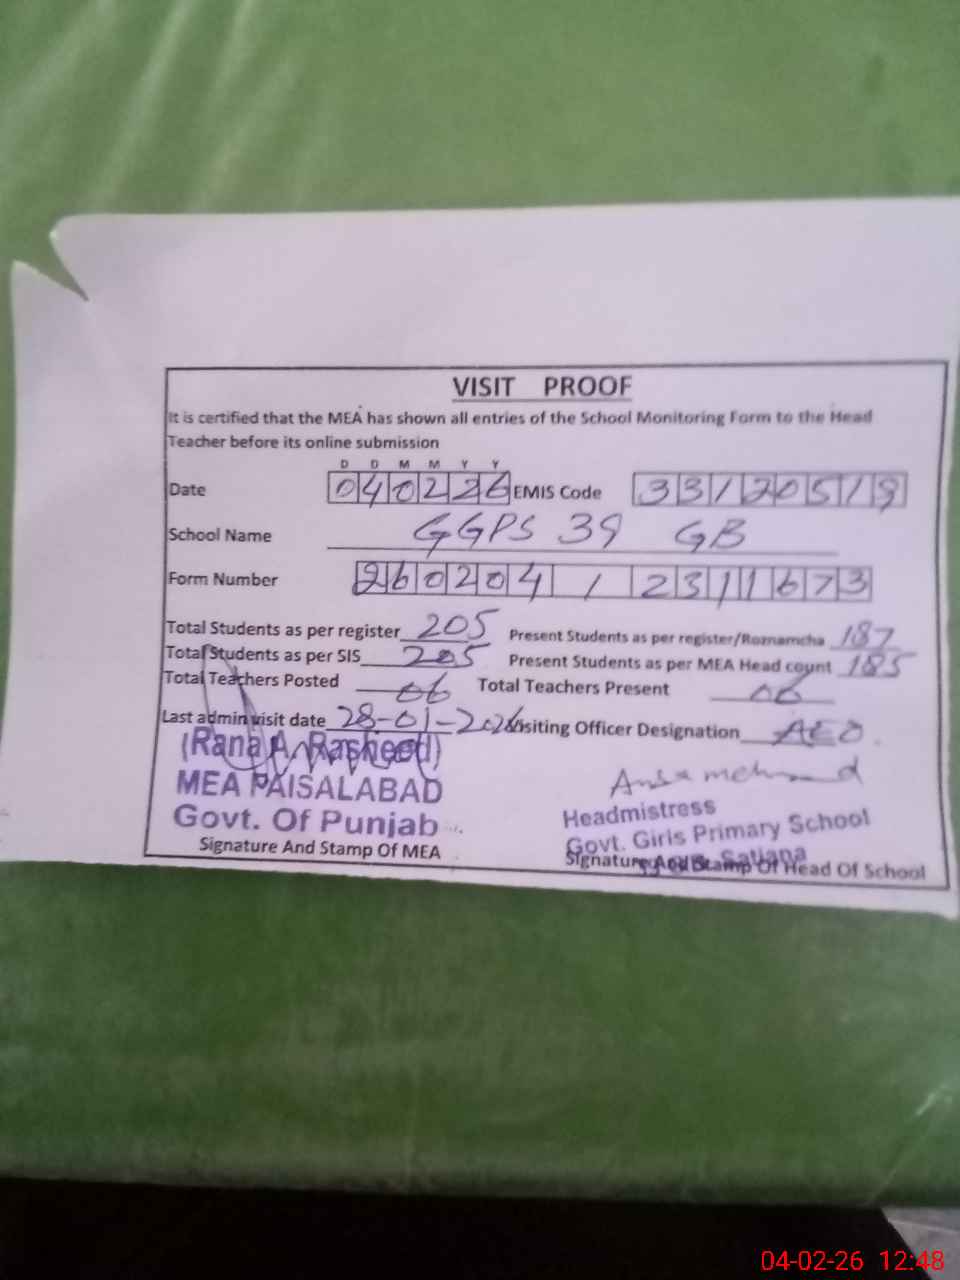 VISIT PROOF
It is certified that the MEA has shown all entries of the School Monitoring Form to the Head
Teacher before its online submission
D D M M Y Y
Date 040226 EMIS Code 33120519
School Name GGPS 39 GB
Form Number 260204 / 2311673
Total Students as per register 205 Present Students as per register/Roznamcha 187
Total Students as per SIS 205 Present Students as per MEA Head count 185
Total Teachers Posted 06 Total Teachers Present 06
Last admin visit date 28-01-2026 Visiting Officer Designation AEO
(Rana A. Rasheed)
MEA FAISALABAD
Govt. Of Punjab
Signature And Stamp Of MEA
Headmistress
Govt. Girls Primary School
Satiana
Signature And Stamp Of Head Of School
04-02-26 12:48